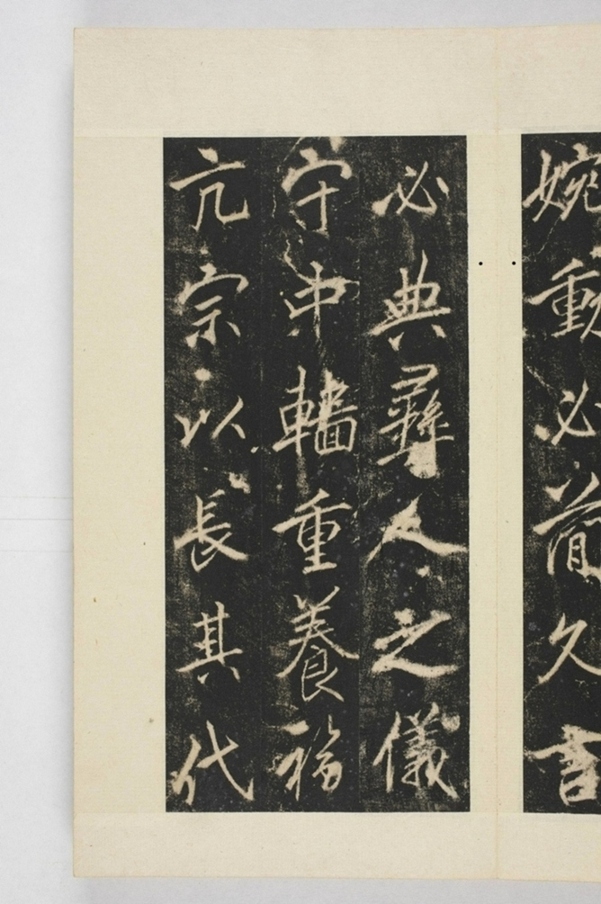 婉動必簡久言
必典彝人之儀
守中輜重養福
亢宗以長其代